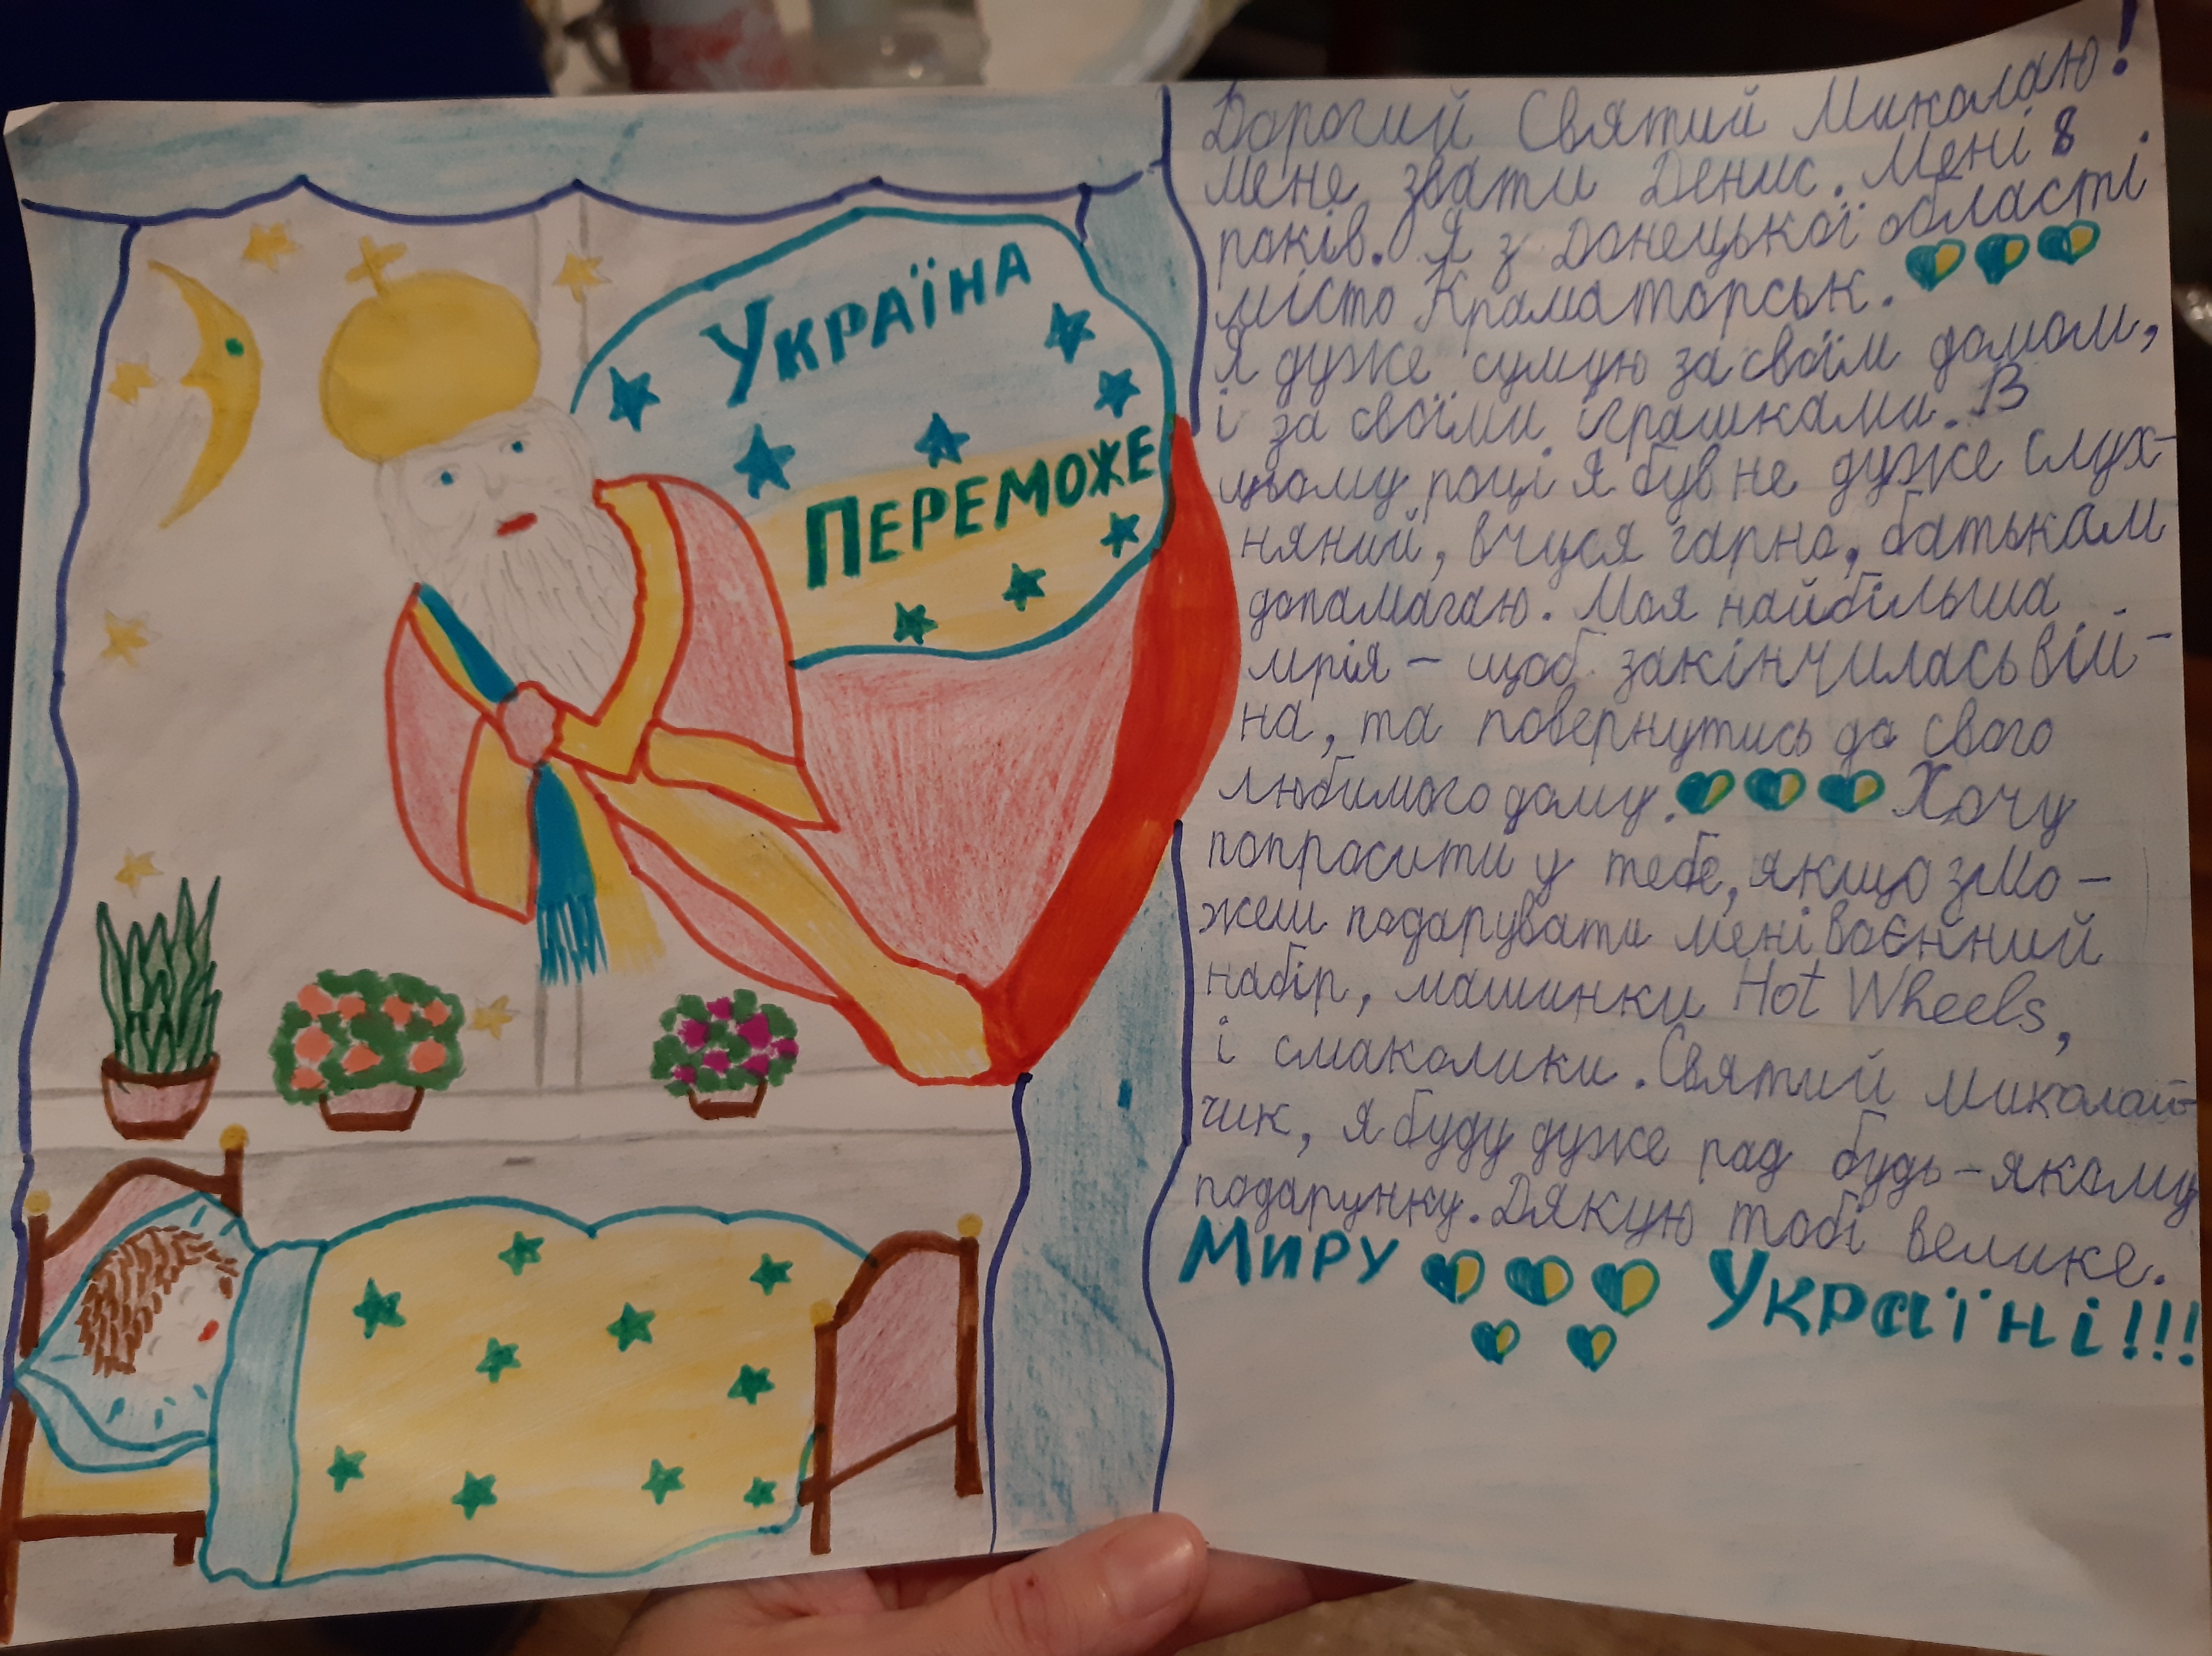 Україна
Переможе
Дорогий Святий Миколаю!
мене звати Денис. Мені 8
років. Я з Донецької області
місто Краматорськ.
Я дуже сумую за своїм домом,
і за своїми іграшками. В
цьому році я був не дуже слух-
няний, вчуся гарно, батькам
допамагаю. Моя найбільша
мрія - щоб закінчилась вій-
на, та повернутись до свого
любимого дому. Хочу
попросити у тебе, якщо зМо-
жеш подарувати мені воєнний
набір, машинки Hot Wheels,
і смаколики. Святий Миколай-
чик, я буду дуже рад будь-якому
подарунку. Дякую тобі велике.
Миру Україні!!!